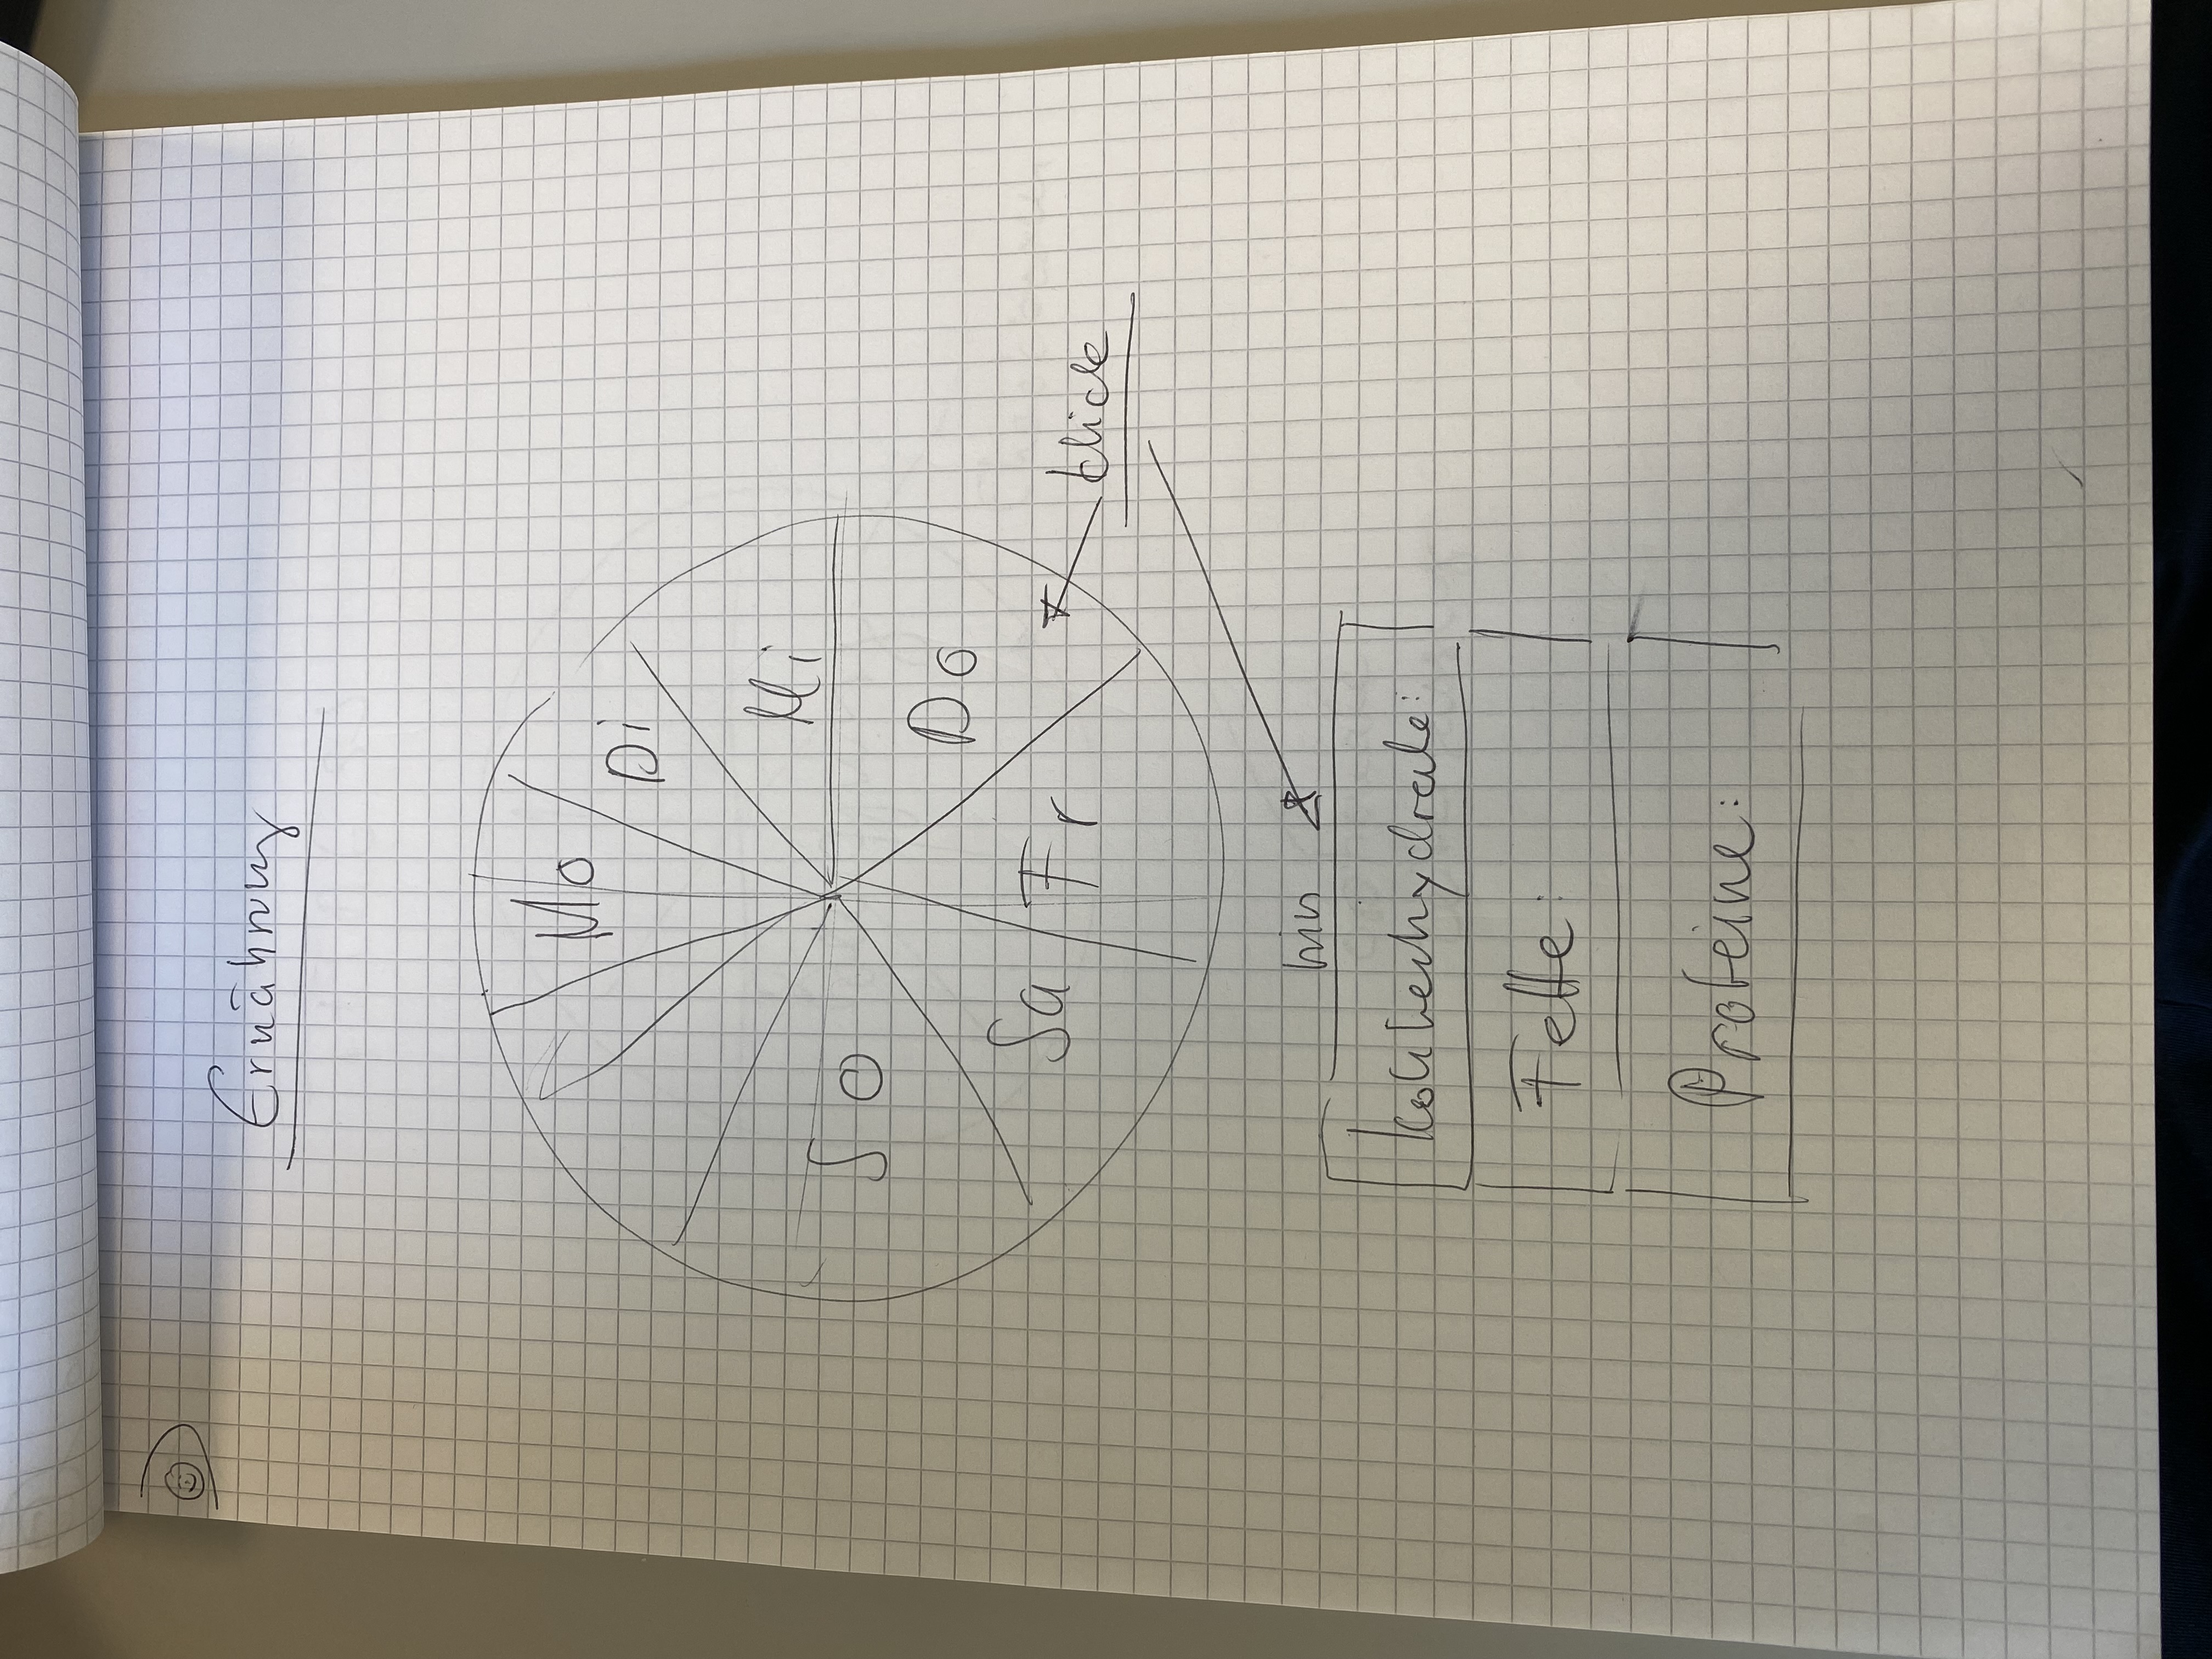 Ernährung
Mo
Di
Mi
Do
Fr
Sa
So
klick
hin
Kohlenhydrate:
Fette:
Proteine: